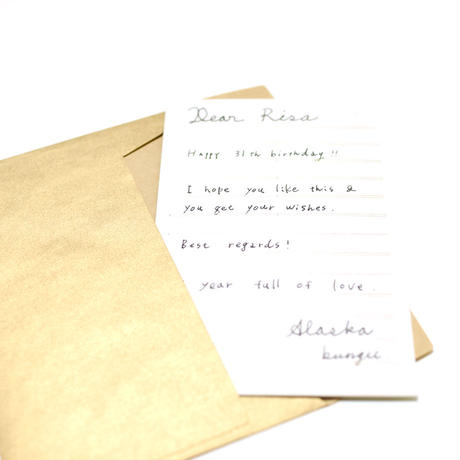 Dear Risa
Happy 31th birthday!!
I hope you like this &
you get your wishes.
Best regards!
year full of love.
Alaska
bungii